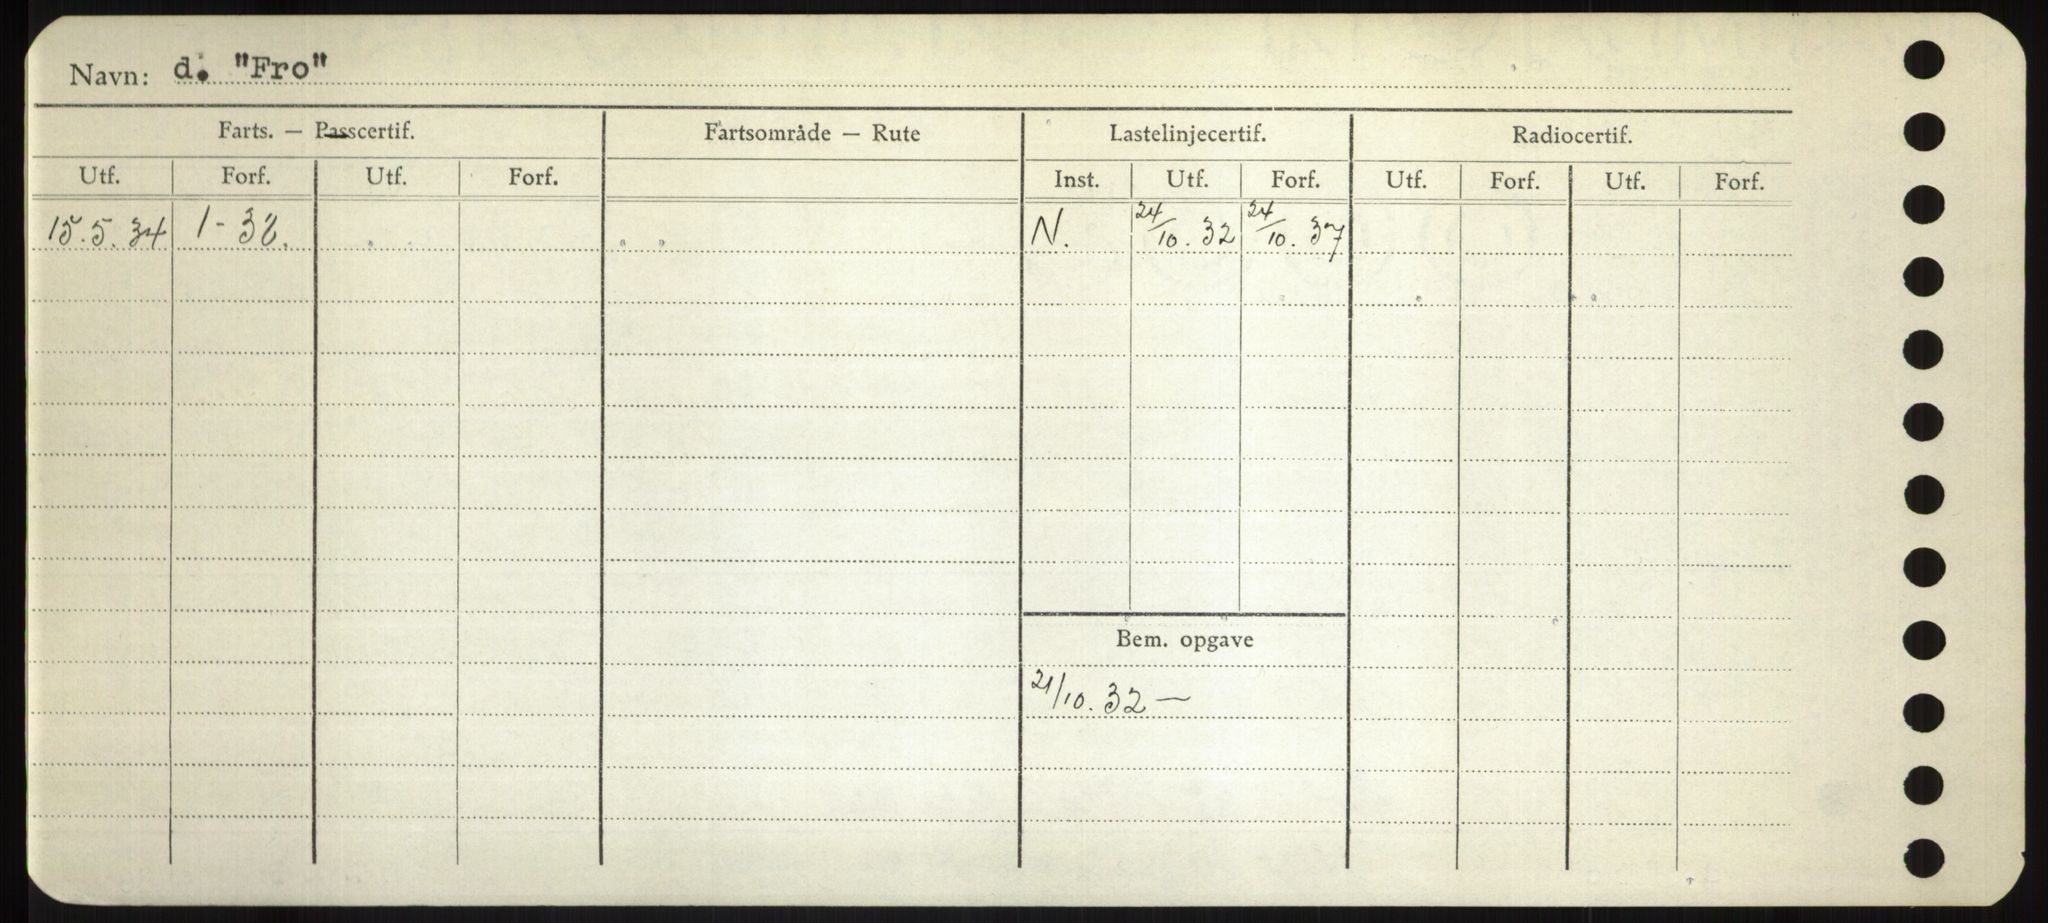 Navn: d. "Fro"
Farts. — Passcertif. Fartsområde — Rute Lastelinjecertif. Radiocertif.
Utf. Forf. Utf. Forf. Inst. Utf. Forf. Utf. Forf. Utf. Forf.
15.5.34 1-38. N. 24/10.32 24/10.37
Bem. opgave
21/10.32 —